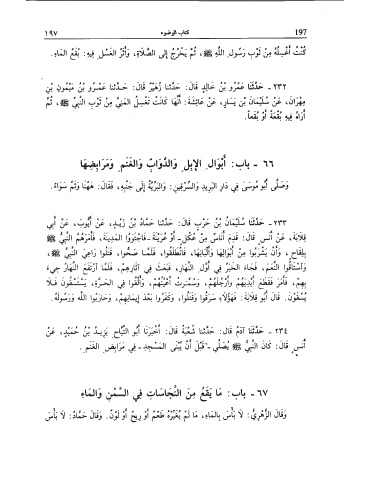 197 كتاب الوضوء ١٩٧
كُنْتُ أَغْسِلُهُ مِنْ ثَوْبِ رَسُولِ اللَّهِ ﷺ، ثُمَّ يَخْرُجُ إِلَى الصَّلَاةِ، وَأَثَرُ الغَسْلِ فِيهِ: بُقَعُ المَاءِ.
٢٣٢ - حَدَّثَنَا عَمْرُو بْنُ خَالِدٍ قَالَ: حَدَّثَنَا زُهَيْرٌ قَالَ: حَدَّثَنَا عَمْرُو بْنُ مَيْمُونِ بْنِ
مِهْرَانَ، عَنْ سُلَيْمَانَ بْنِ يَسَارٍ، عَنْ عَائِشَةَ: أَنَّهَا كَانَتْ تَغْسِلُ المَنِيَّ مِنْ ثَوْبِ النَّبِيِّ ﷺ، ثُمَّ
أَرَاهُ فِيهِ بُقْعَةً أَوْ بُقَعاً.
٦٦ - باب: أَبْوَالِ الإِبِلِ وَالدَّوَابِّ وَالغَنَمِ وَمَرَابِضِهَا
وَصَلَّى أَبُو مُوسَى فِي دَارِ البَرِيدِ وَالسِّرْقِينِ، وَالبَرِّيَّةُ إِلَى جَنْبِهِ، فَقَالَ: هٰهُنَا وَثَمَّ سَوَاءٌ.
٢٣٣ - حَدَّثَنَا سُلَيْمَانُ بْنُ حَرْبٍ قَالَ: حَدَّثَنَا حَمَّادُ بْنُ زَيْدٍ، عَنْ أَيُّوبَ، عَنْ أَبِي
قِلَابَةَ، عَنْ أَنَسٍ قَالَ: قَدِمَ أُنَاسٌ مِنْ عُكْلٍ أَوْ عُرَيْنَةَ، فَاجْتَوَوُا المَدِينَةَ، فَأَمَرَهُمُ النَّبِيُّ ﷺ
بِلِقَاحٍ، وَأَنْ يَشْرَبُوا مِنْ أَبْوَالِهَا وَأَلْبَانِهَا، فَانْطَلَقُوا، فَلَمَّا صَحُّوا، قَتَلُوا رَاعِيَ النَّبِيِّ ﷺ،
وَاسْتَاقُوا النَّعَمَ، فَجَاءَ الخَبَرُ فِي أَوَّلِ النَّهَارِ، فَبَعَثَ فِي آثَارِهِمْ، فَلَمَّا ارْتَفَعَ النَّهَارُ جِيءَ
بِهِمْ، فَأَمَرَ فَقَطَعَ أَيْدِيَهُمْ وَأَرْجُلَهُمْ، وَسُمِّرَتْ أَعْيُنُهُمْ، وَأُلْقُوا فِي الحَرَّةِ، يَسْتَسْقُونَ فَلَا
يُسْقَوْنَ. قَالَ أَبُو قِلَابَةَ: فَهٰؤُلَاءِ سَرَقُوا وَقَتَلُوا، وَكَفَرُوا بَعْدَ إِيمَانِهِمْ، وَحَارَبُوا اللَّهَ وَرَسُولَهُ.
٢٣٤ - حَدَّثَنَا آدَمُ قَالَ: حَدَّثَنَا شُعْبَةُ قَالَ: أَخْبَرَنَا أَبُو التَّيَّاحِ يَزِيدُ بْنُ حُمَيْدٍ، عَنْ
أَنَسٍ قَالَ: كَانَ النَّبِيُّ ﷺ يُصَلِّي - قَبْلَ أَنْ يُبْنَى المَسْجِدُ - فِي مَرَابِضِ الغَنَمِ.
٦٧ - باب: مَا يَقَعُ مِنَ النَّجَاسَاتِ فِي السَّمْنِ وَالمَاءِ
وَقَالَ الزُّهْرِيُّ: لَا بَأْسَ بِالمَاءِ، مَا لَمْ يُغَيِّرْهُ طَعْمٌ أَوْ رِيحٌ أَوْ لَوْنٌ. وَقَالَ حَمَّادٌ: لَا بَأْسَ